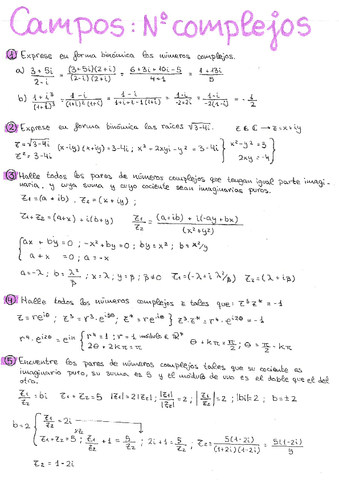 Campos: Nº complejos
① Exprese en forma binómica los números complejos.
a) (3+5i)/(2-i) = (3+5i)(2+i)/(2-i)(2+i) = (6+3i+10i-5)/(4+1) = (1+13i)/5
b) (1+i³)/(1+i)³ = (1-i)/((1+i)²(1+i)) = (1-i)/(1+i²+2i)(1+i) = (1-i)/(-2+2i) = (1-i)/(-2(1-i)) = -1/2
② Exprese en forma binómica las raíces √3-4i. z ∈ ℂ → z = x+iy
z = √3-4i
z² = 3-4i (x+iy)(x+iy) = 3-4i; x²+2xyi-y² = 3-4i } x²-y² = 3
2xy = -4
③ Halle todos los pares de números complejos que tengan igual parte imagi-
naria, y cuya suma y cuyo cociente sean imaginarios puros.
z₁ = (a+ib). z₂ = (x+iy);
z₁+z₂ = (a+x)+i(b+y) z₁/z₂ = ((a+ib)+i(-ay+bx))/(x²+y²)
{ ax + by = 0; -x²+by = 0; by = x²; b = x²/y
a + x = 0; a = -x
a = -λ; b = λ²/β; x = λ; y = β; β≠0 z₁ = (-λ+i λ²/β) z₂ = (λ+iβ)
④ Halle todos los números complejos z tales que: z³z* = -1
z = re^iθ; z³ = r³·e^i3θ; z* = re^-iθ } z³·z* = r⁴·e^i2θ = -1
r⁴·e^i2θ = e^iπ { r⁴ = 1; r = 1 módulo ∈ ℝ⁺
2θ + 2kπ = π θ + kπ = π/2; θ = π/2 - kπ
⑤ Encuentre los pares de números complejos tales que su cociente es
imaginario puro, su suma es 5 y el módulo de uno es el doble que el del
otro.
z₁/z₂ = bi z₁+z₂ = 5 |z₁| = 2|z₂|; |z₁|/|z₂| = 2; |z₁/z₂| = 2; |bi| = 2; b = ±2
b = 2 { z₁/z₂ = 2i
z₁+z₂ = 5; z₁/z₂ + 1 = 5/z₂; 2i+1 = 5/z₂; z₂ = 5(1-2i)/(1+2i)(1-2i) = 5(1-2i)/5
z₂ = 1-2i